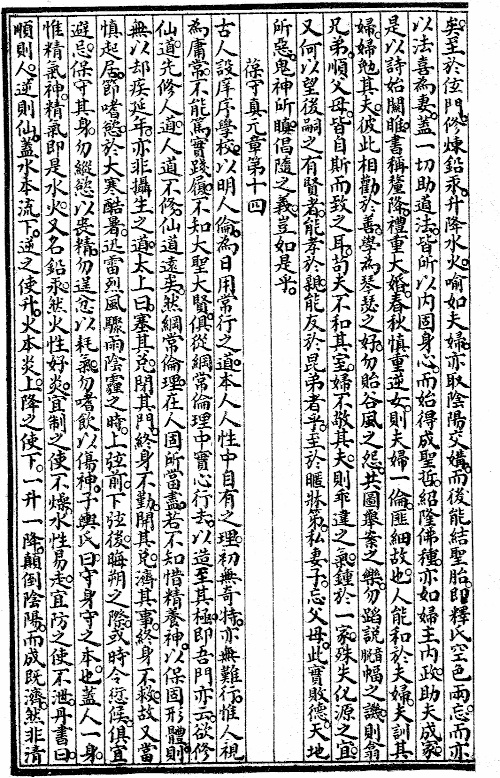 矣至於位門修煉鉛汞升降水火喻如夫婦亦取陰陽交媾而後能結聖胎即釋氏空色兩忘而亦
以法喜為妻蓋一切助道法皆所以內固身心而始得成聖哲紹隆佛種亦如婦主內政助夫成家
是以詩始關雎書稱釐降禮重大婚春秋慎重逆女則夫婦一倫匪細故也人能和於夫婦夫訓其
婦婦勉其夫彼此相勸於善學為琴瑟之好勿貽谷風之怨共圖舉案之樂勿蹈說輻之譏則翕
兄弟順父母皆自斯而致之耳苟夫不和其室婦不敬其夫則乖違之氣鍾於一家殊失化源之宜
又何以望後嗣之有賢者能孝於親能友於昆弟者乎至於暱牀笫私妻子忘父母此實敗德天地
所惡鬼神所瞋倡隨之義豈如是乎
葆守真元章第十四
古人設庠序學校以明人倫為日用常行之道本人人性中自有之理初無奇特亦無難行惟人視
為庸常不能篤實踐履不知大聖大賢俱從綱常倫理中實心行去以造至其極即吾門亦云欲修
仙道先修人道人道不修仙道遠矣然綱常倫理在人固所當盡若不知惜精養神以保固形體則
無以却疾延年亦非攝生之道太上曰塞其兌閉其門終身不勤開其兌濟其事終身不救故又當
慎起居節嗜慾於大寒酷暑迅雷烈風驟雨陰霾之時上弦前下弦後晦朔之際或時令愆候俱宜
避忌保守其身勿縱慾以喪精勿逞忿以耗氣勿嗜飲以傷神子輿氏曰守身守之本也蓋人一身
惟精氣神精氣即是水火又名鉛汞然火性好炎宜制之使不燥水性易走宜防之使不泄丹書曰
順則人逆則仙蓋水本流下逆之使升火本炎上降之使下一升一降顛倒陰陽而成既濟然非清